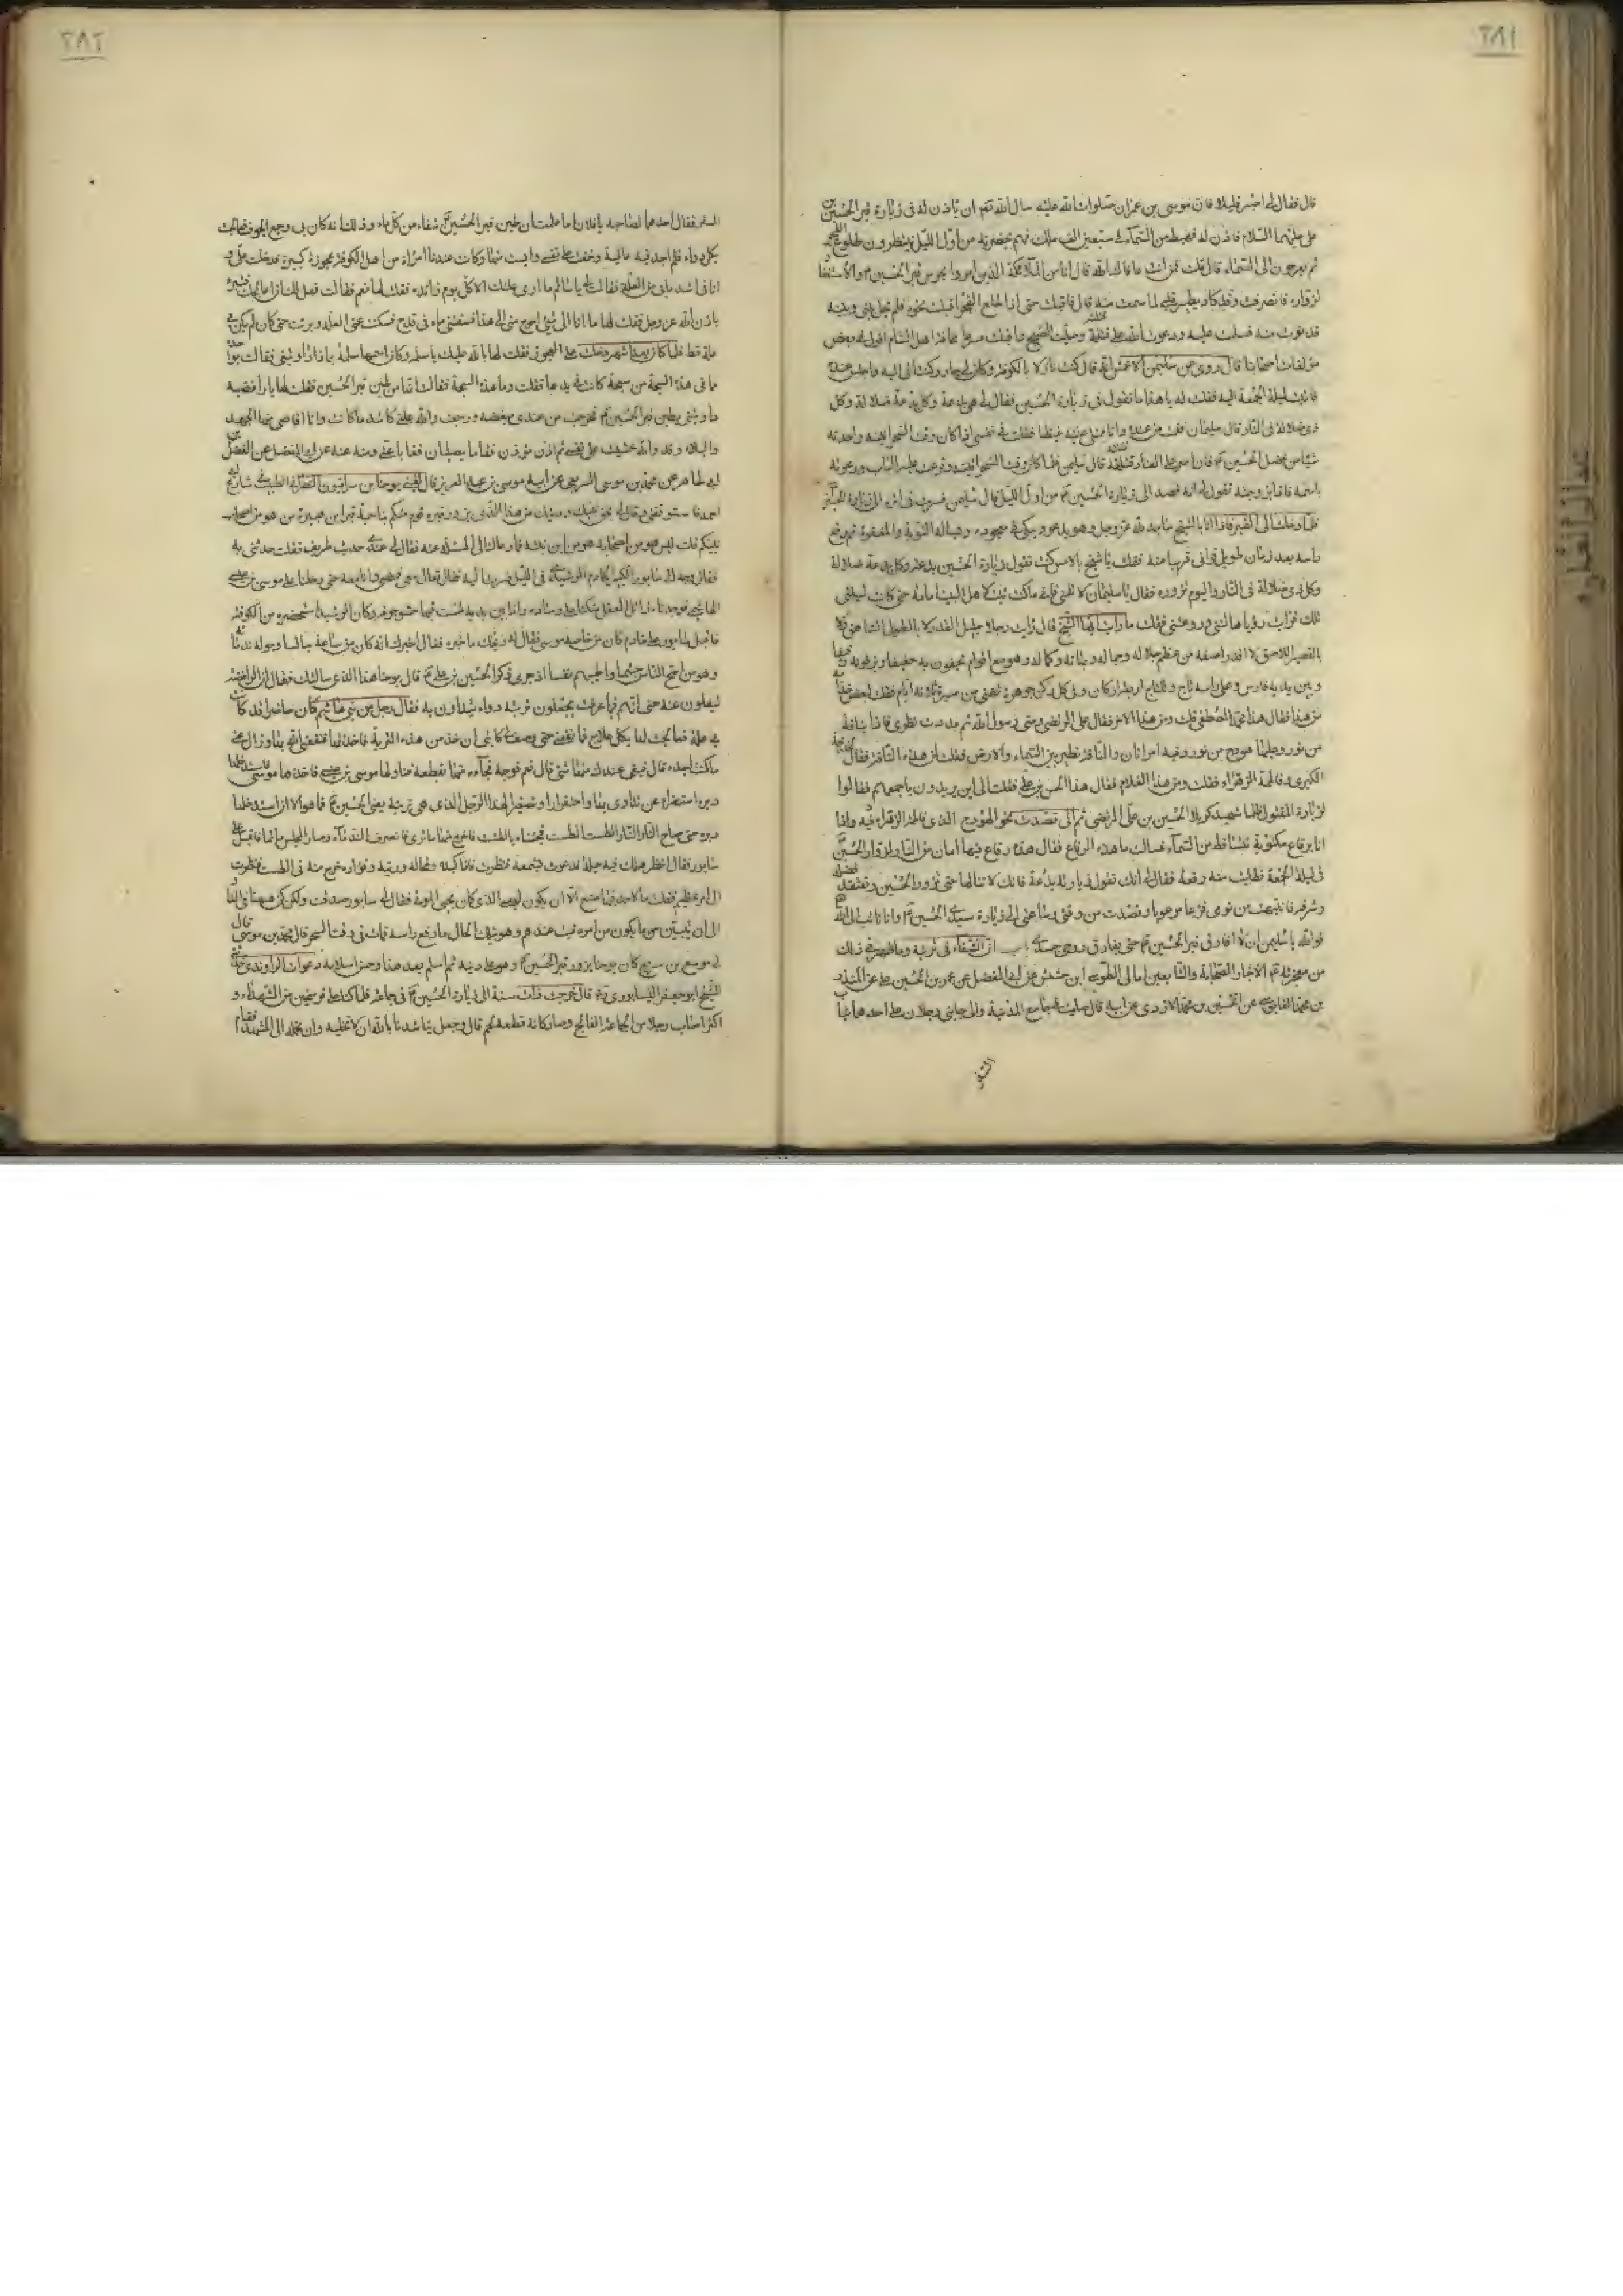 ٢٨١
قال فقال لي اصبر قليلا فان موسى بن عمران صلوات الله عليه سال الله ان ياذن له في زيارة قبر الحسين بن
علي عليهما السلام فاذن له فهبط من السماء في سبعين الف ملك فهم بحضرته من اول الليل ينتظرون طلوع الفجر
ثم يعرجون الى السماء قال قلت فمن انت عافاك الله قال انا من الملائكة الذين امروا بحرس قبر الحسين والاستغفار
لزواره فانصرفت وقد كاد يطير قلبي لما سمعت منه قال فاقبلت حتى اذا طلع الفجر اقبلت نحوه فلم يحل بيني وبينه
فدنوت منه فسلمت عليه ودعوت الله على قتلته وصليت الصبح واقبلت مسرعا مخافة اهل الشام اقول في بعض
مؤلفات اصحابنا قال روى عن سليمن الاعمش انه قال كنت نازلا بالكوفة وكان لي جار وكنت اتي اليه واجلس عنده
فاتيت ليلة الجمعة اليه فقلت له يا هذا ما تقول في زيارة الحسين فقال لي هي بدعة وكل بدعة ضلالة وكل
ذي ضلالة في النار قال سليمان فقمت من عنده وانا ممتلئ عليه غيظا فقلت في نفسي اذا كان وقت السحر اتيته واحدثه
شيئا من فضل الحسين فان اصر على العناد قتلته قال سليمن فلما كان وقت السحر اتيته وقرعت عليه الباب ودعوته
باسمه فاذا بزوجته تقول لي انه قصد الى زيارة الحسين من اول الليل قال سليمن فسرت في اثره الى زيارة الحسين
فلما دخلت الى القبر فاذا انا بالشيخ ساجد لله عز وجل وهو يدعو ويبكي في سجوده ويساله التوبة والمغفرة ثم رفع
راسه بعد زمان طويل فراني قريبا منه فقلت يا شيخ بالامس كنت تقول زيارة الحسين بدعة وكل بدعة ضلالة
وكل ذي ضلالة في النار واليوم تزوره فقال يا سليمان لا تلمني فاني ما كنت اثبت لاهل البيت امامة حتى كانت ليلتي
تلك فرايت رؤيا هالتني وروعتني فقلت ما رايت ايها الشيخ قال رايت رجلا جليل القدر لا بالطويل الشاهق ولا
بالقصير اللاصق لا اقدر اصفه من عظم جلاله وجماله وبهائه وكماله وهو مع اقوام يحفون به حفيفا ويزفونه زفيفا
وبين يديه فارس وعلى راسه تاج وللتاج اربعة اركان وفي كل ركن جوهرة تضئ من مسيرة ثلاثة ايام فقلت لبعض خدامه
من هذا فقال هذا محمد المصطفى قلت ومن هذا الاخر فقال علي المرتضى وصي رسول الله ثم مددت نظري فاذا بناقة
من نور وعليها هودج من نور وفيه امراتان والناقة تطير بين السماء والارض فقلت لمن هذه الناقة فقال لخديجة
الكبرى وفاطمة الزهراء فقلت ومن هذا الغلام فقال هذا الحسن بن علي فقلت الى اين يريدون باجمعهم فقالوا
لزيارة المقتول ظلما شهيد كربلا الحسين بن علي المرتضى ثم اني قصدت نحو الهودج الذي فاطمة الزهراء فيه واذا
انا برقاع مكتوبة تتساقط من السماء فسالت ما هذه الرقاع فقال هذه رقاع فيها امان من النار لزوار الحسين
في ليلة الجمعة فطلبت منه رقعة فقال لي انك تقول زيارته بدعة فانك لا تنالها حتى تزور الحسين وتعتقد فضله
وشرفه فانتبهت من نومي فزعا مرعوبا وقصدت من وقتي وساعتي الى زيارة سيدي الحسين وانا تائب الى الله
فوالله يا سليمن لا افارق قبر الحسين حتى يفارق روحي جسدي باب ان الشفاء في تربته وما ظهر في ذلك
من معجزاته الاخبار الصحابة والتابعين امالي الطوسي ابن حشيش عن ابي المفضل عن عمر بن الحسين بن علي عن المنذر
بن محمد القابوسي عن الحسين بن محمد الازدي عن ابيه قال صليت في جامع المدينة والى جانبي رجلان على احدهما ثياب
السفر
٢٨٢
السفر فقال احدهما لصاحبه يا فلان اما علمت ان طين قبر الحسين شفاء من كل داء وذلك انه كان بي وجع الجوف فتعالجت
بكل دواء فلم اجد فيه عافية وخفت على نفسي وايست منها وكانت عندنا امراة من اهل الكوفة عجوزة كبيرة فدخلت علي و
انا في اشد ما بي من العلة فقالت لي يا سالم ما ارى علتك الا كل يوم زائدة فقلت لها نعم فقالت فهل لك ان اعالجك فتبرء
باذن الله عز وجل فقلت لها ما انا الى شئ احوج مني الى هذا فسقتني ماء في قدح فسكت عني العلة وبرئت حتى كان لم يكن بي
علة قط فلما كان بعد اشهر دخلت علي العجوز فقلت لها بالله عليك يا سلمة وكان اسمها سلمة بما ذا داويتني فقالت بواحدة
مما في هذه السبحة من سبحة كانت في يدها فقلت وما هذه السبحة فقالت انها من طين قبر الحسين فقلت لها يا رافضية
داويتني بطين قبر الحسين فخرجت من عندي مغضبة ورجعت والله علتي كاشد ما كانت وانا اقاسي منها الجهد
والبلاء وقد والله خشيت على نفسي ثم اذن مؤذن فقاما يصليان فغابا عني ومنه عنه عن ابي المفضل عن الفضل بن
ابي طاهر عن محمد بن موسى السريعي عن ابيه موسى بن عبد العزيز قال لقيني يوحنا بن سراقيون النصراني الطبيب في شارع ابي
احمد فاستوقفني وقال لي بحق نبيك ودينك من هذا الذي يزور قبره قوم منكم بناحية قبر ابن هبيرة من هو من اصحاب
نبيكم قلت ليس هو من اصحابه هو ابن بنته فما دعاك الى المسئلة عنه فقال لي عندي حديث طريف فقلت حدثني به
فقال وجه الي سابور الكبير الخادم الرشيدي في الليل فصرت اليه فقال تعال معي فمضى وانا معه حتى دخلنا على موسى بن عيسى
الهاشمي فوجدناه زائل العقل متكئا على وسادة واذا بين يديه طست فيها حشو جوفه وكان الرشيد استحضره من الكوفة
فاقبل سابور على خادم كان من خاصة موسى فقال له ويحك ما خبره فقال اخبرك انه كان من ساعة جالسا وحوله ندماؤه
وهو من اصح الناس جسما واطيبهم نفسا اذ جرى ذكر الحسين بن علي قال يوحنا هذا الذي سالتك فقال ان الرافضة
ليغلون فيه حتى انهم فيما عرفت يجعلون تربته دواء يتداوون به فقال رجل من بني هاشم كان حاضرا قد كانت
بي علة فتعالجت لها بكل علاج فما نفعني حتى وصف لي كاتبي ان خذ من هذه التربة فاخذتها فنفعني الله بها وزال عني
ما كنت اجده قال فبقي عندك منها شئ قال نعم فوجه فجاءه منها بقطعة فناولها موسى بن عيسى فاخذها موسى فاستدخلها
دبره استهزاء بمن تداوى بها واحتقارا وتصغيرا لهذا الرجل الذي هي تربته يعني الحسين فما هو الا ان استدخلها
دبره حتى صاح النار النار الطست الطست فجئناه بالطست فاخرج فيها ما ترى فانصرف الندماء وصار المجلس ماتما فاقبل علي
سابور فقال انظر هل لك فيه حيلة فدعوت بشمعة فنظرت فاذا كبده وطحاله وريته وفؤاده خرج منه في الطست فنظرت
الى امر عظيم فقلت ما لاحد في هذا صنع الا ان يكون لعيسى الذي كان يحيي الموتى فقال لي سابور صدقت ولكن كن هيهنا في الدار
الى ان يتبين ما يكون من امره فبت عندهم وهو بتلك الحال ما رفع راسه فمات في وقت السحر قال محمد بن موسى قال
لي موسى بن سريع كان يوحنا يزور قبر الحسين وهو على دينه ثم اسلم بعد هذا وحسن اسلامه دعوات الراوندي حدثني
الشيخ ابو جعفر النيسابوري قال خرجت ذات سنة الى زيارة الحسين في جماعة فلما كنا على فرسخين من المشهد او
اكثر اصاب رجلا من الجماعة الفالج وصار كانه قطعة لحم قال وجعل يناشدنا بالله ان لا نخليه وان نحمله الى المشهد فقام